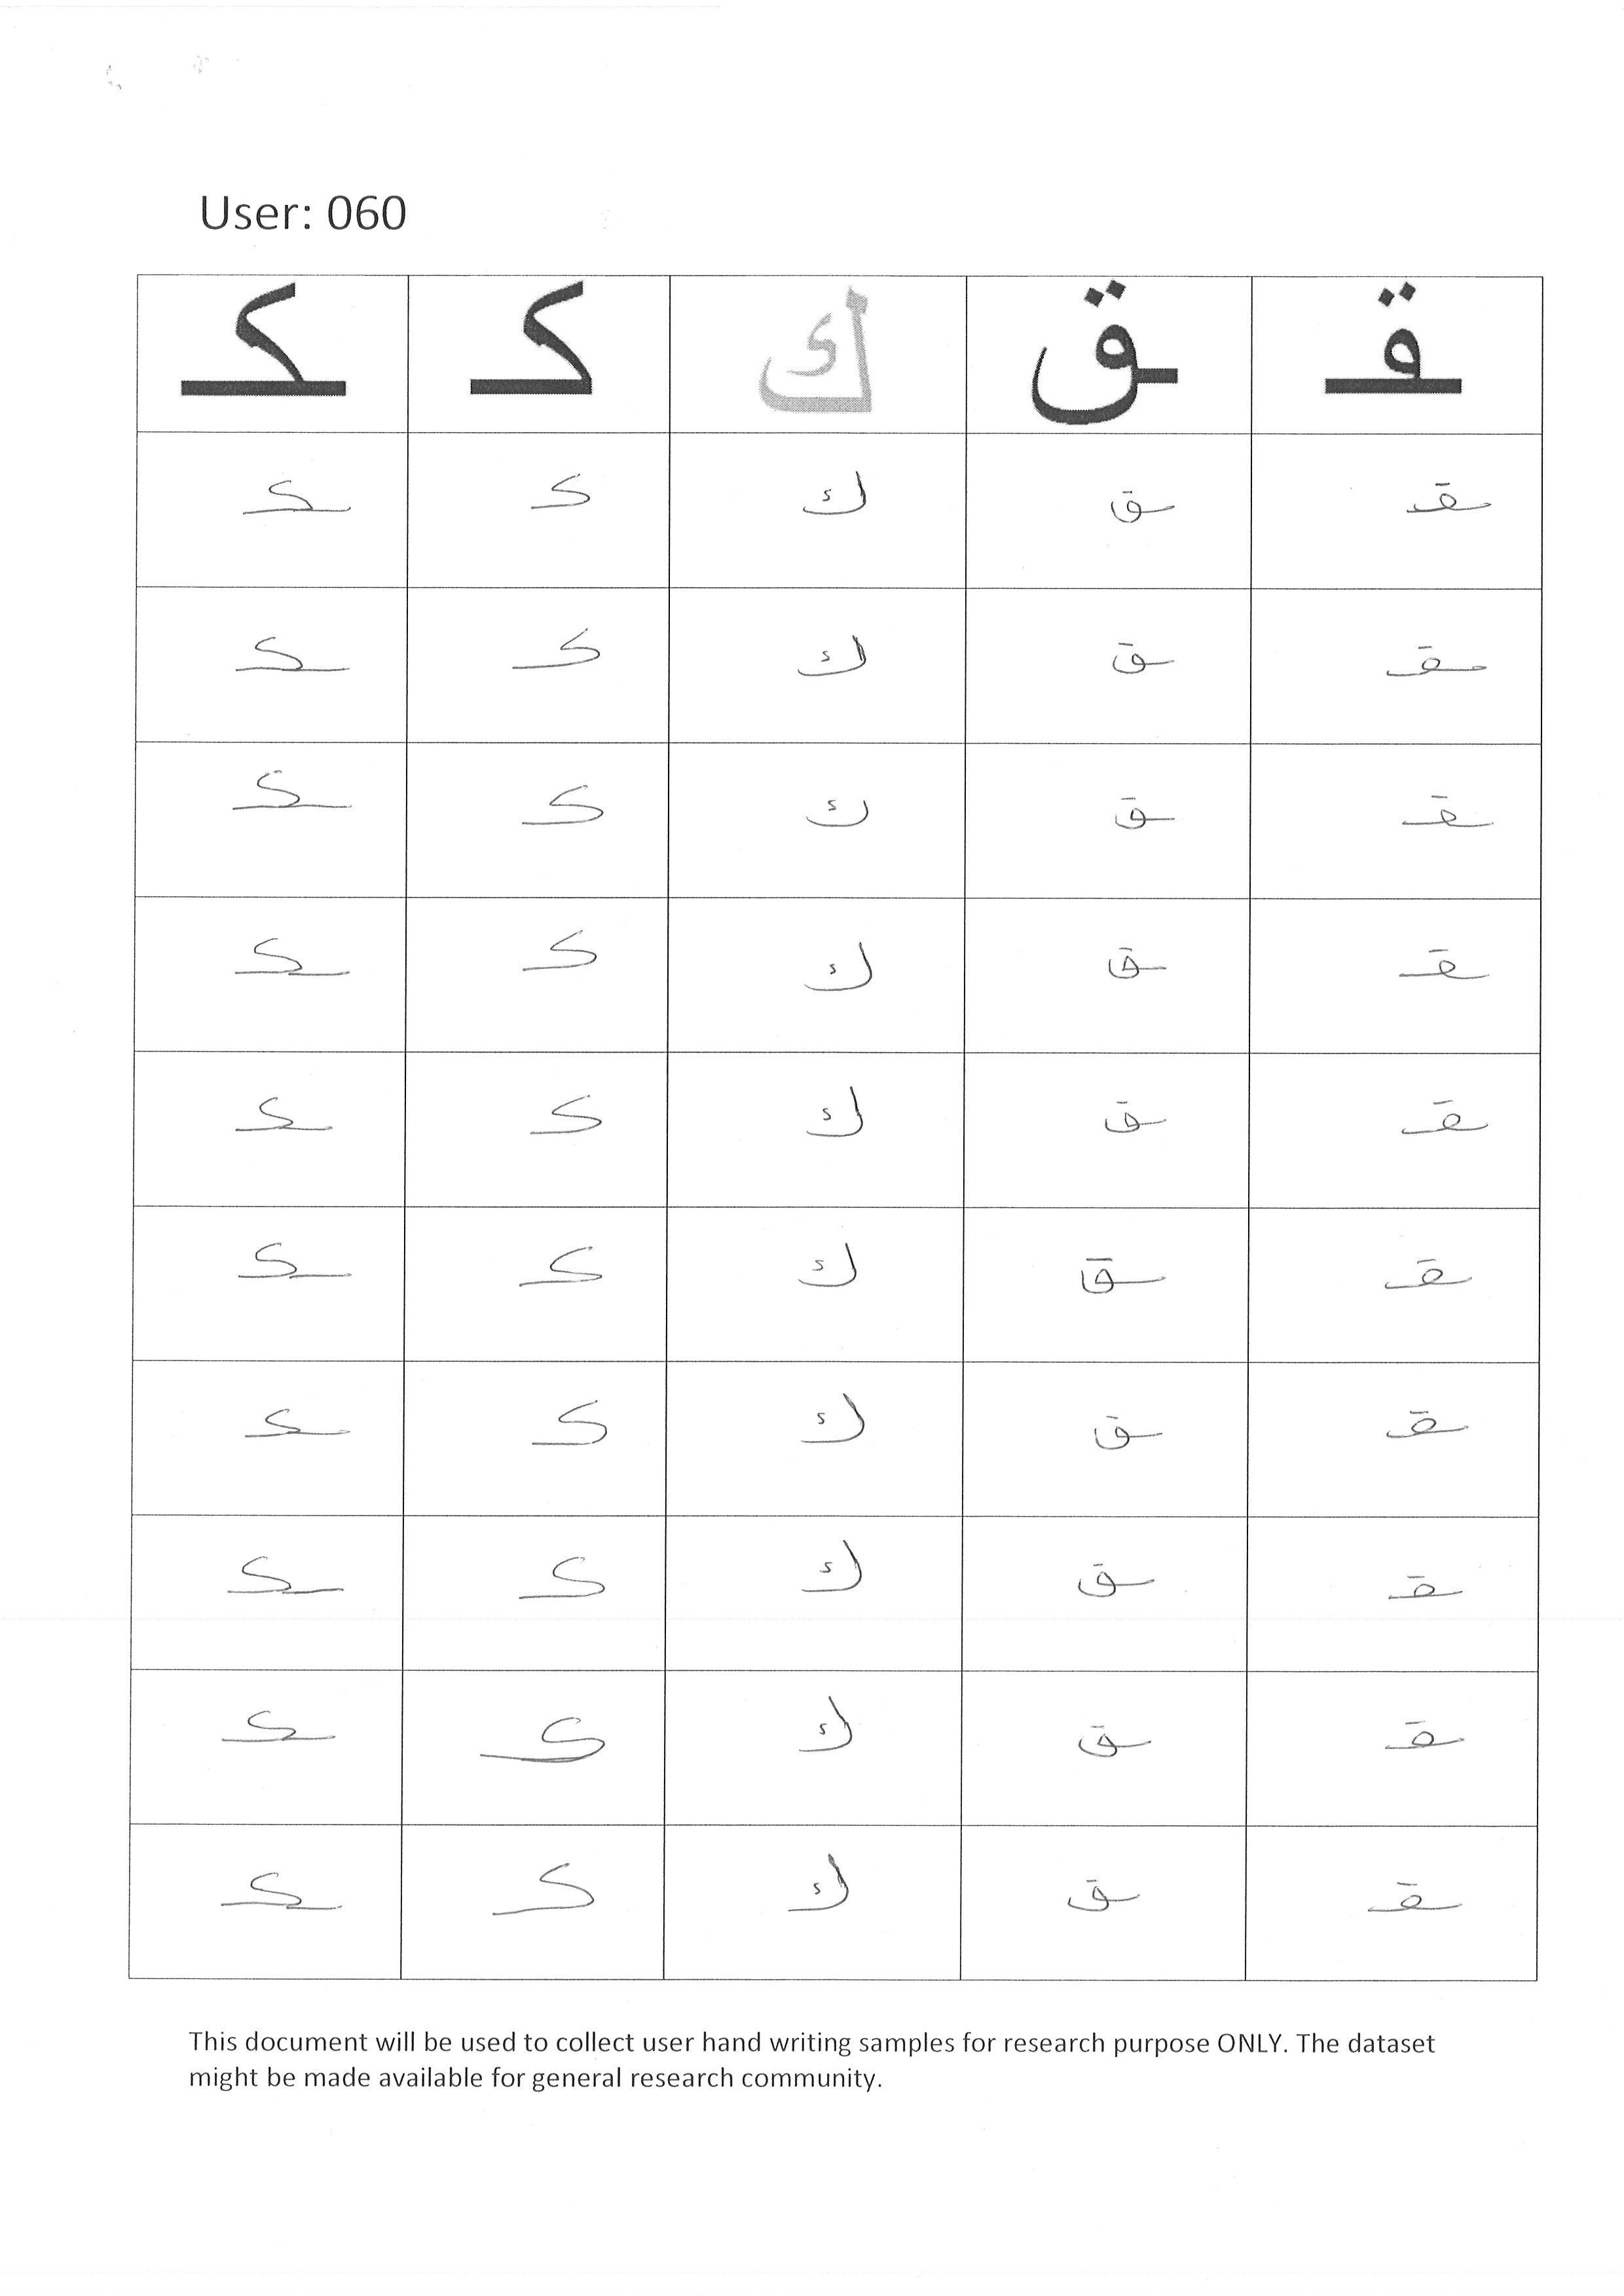 User: 060
ـقـ ـق ك كـ ـكـ
ـقـ ـق ك كـ ـكـ
ـقـ ـق ك كـ ـكـ
ـقـ ـق ك كـ ـكـ
ـقـ ـق ك كـ ـكـ
ـقـ ـق ك كـ ـكـ
ـقـ ـق ك كـ ـكـ
ـقـ ـق ك كـ ـكـ
ـقـ ـق ك كـ ـكـ
ـقـ ـق ك كـ ـكـ
ـقـ ـق ك كـ ـكـ
This document will be used to collect user hand writing samples for research purpose ONLY. The dataset
might be made available for general research community.